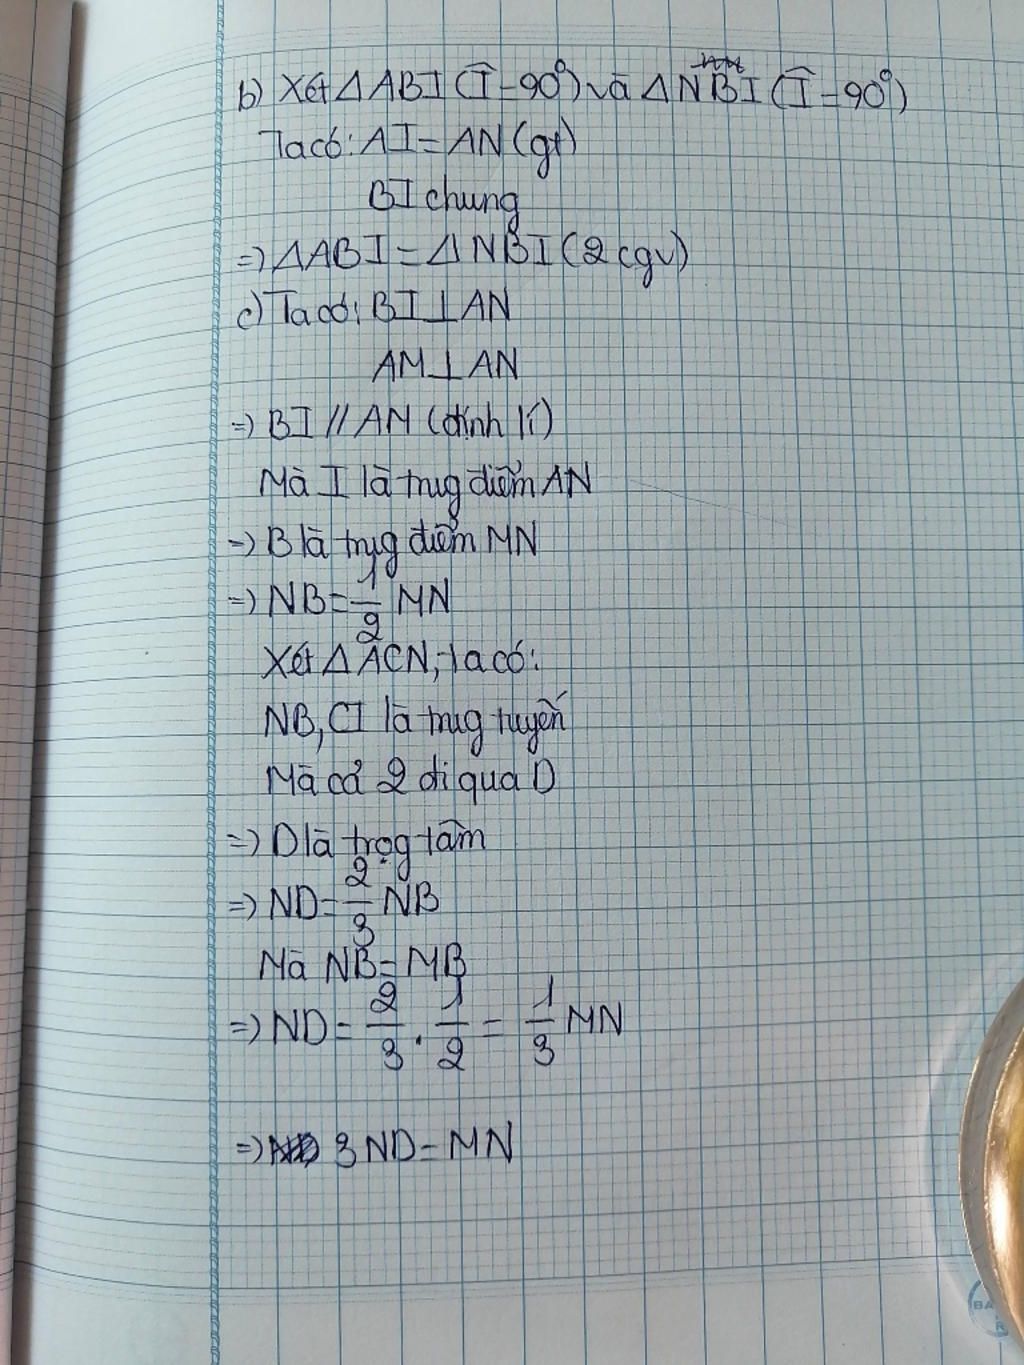 b) Xét △ABI (Î=90°) và △NBI (Î=90°)
Ta có: AI=AN (gt)
BI chung
=> △ABI=△NBI (2cgv)
c) Ta có: BI⊥AN
AM⊥AN
=> BI // AM (định lí)
Mà I là trug điểm AN
=> B là trug điểm MN
=> NB=1/2 MN
Xét △ACN, ta có:
NB, CI là trug tuyến
Mà cả 2 đi qua D
=> D là trọg tâm
=> ND=2/3 NB
Mà NB=MB
=> ND=2/3 . 1/2 = 1/3 MN
=> 3ND=MN